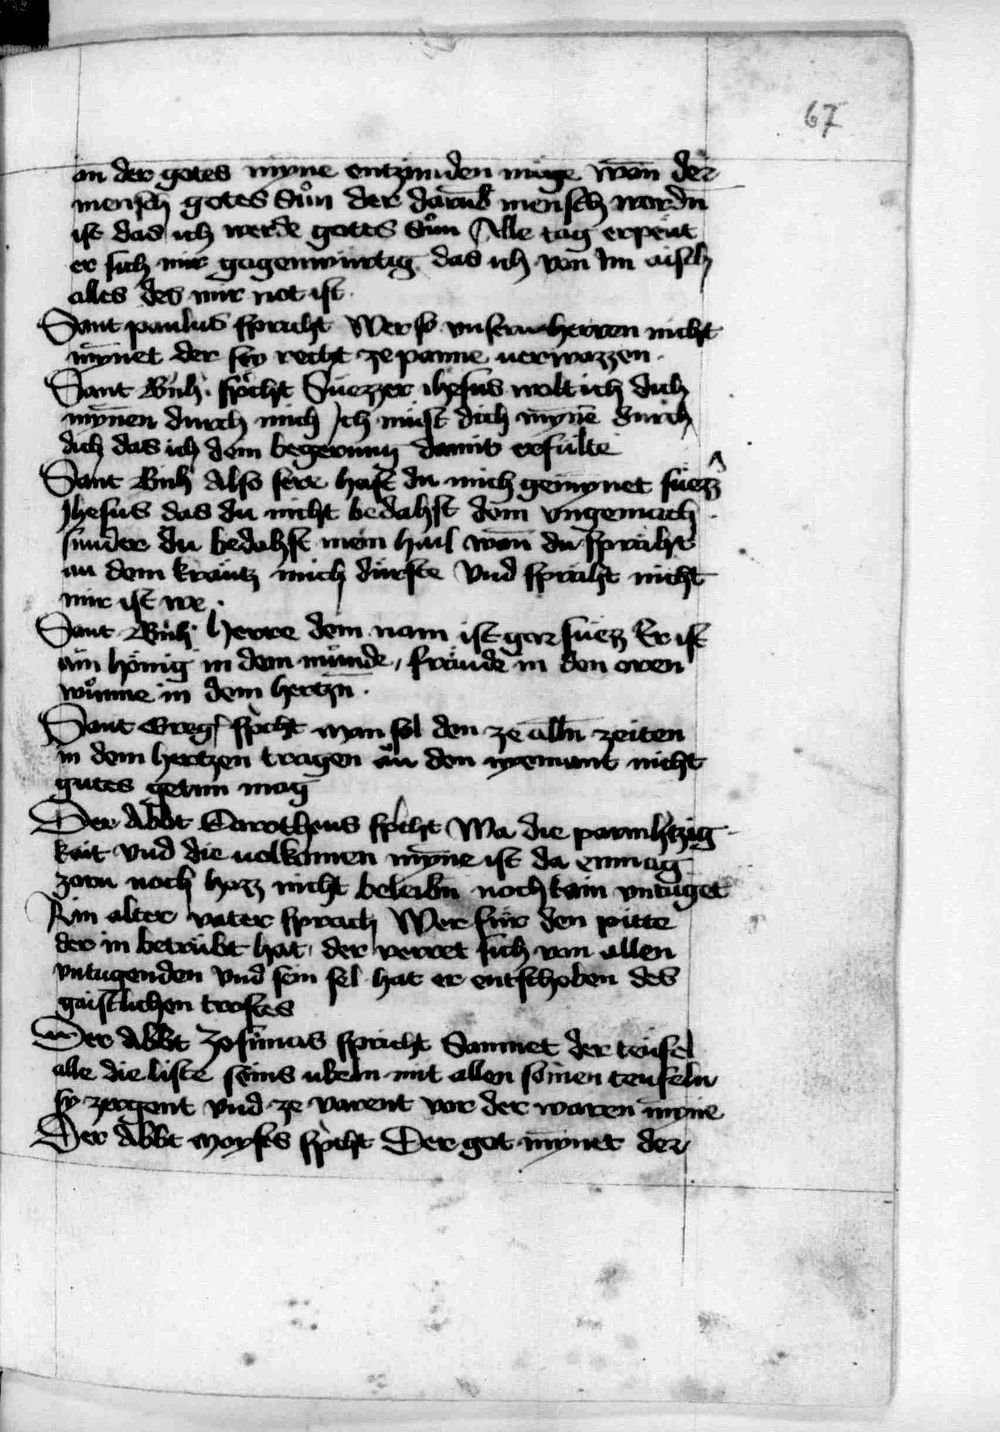 67
an der gotes mynne entzünden müge wann der
mensch gotes sůn der darumb mensch wordn
ist das ich werde gottes sůn Alle tag erpeut
er sich mir gagenwürtig das ich von im aisch
alles des mir not ist.
Sant paulus spricht Wer so unsern herren nicht
mynnet der sey recht ze panne verwazzen.
Sant Bnh. spͥcht Süezzer ihesus wolt ich dich
mynnen durch mich Ich müst dich mynnē durch
dich das ich dein begerung damit erfülte
Sant Bnh Also sere hast du mich gemynnet süezz
Jhesus das du nicht bedahst dein ungemach.
sunder du bedahst mein hail wann du sprächt
an dem kräutz mich dürste Und sprächt nicht
mir ist we.
Sant Bnh. Herre dein nam ist gar süezz Er ist
ain hönig in dem munde, fräude in den oren
wůnne in dem hertzn̄.
Sant Greg spͥcht man sol den ze alln̄ zeiten
in dem hertzen tragen an den nyemant nicht
gutes getun mag
Der Abbt Dorotheus spͥcht Wa die parmhtzig
kait und die volkomen mynne ist da enmag
zorn noch hazz nicht beleibn̄ noch kain untuget
Ain alter vater sprach Wer für den pitte
der in betrübt hat, der verret sich von allen
untugenden und sein sel hat er entschoben des
gaistlichen trostes
Der Abbt Zosimas spricht Sammet der teufel
alle die liste seins ubeln mit allen seinen teufeln
sy zergent und ze varent vor der waren mynne
Der Abbt moyses spͥcht Der got mynnet der